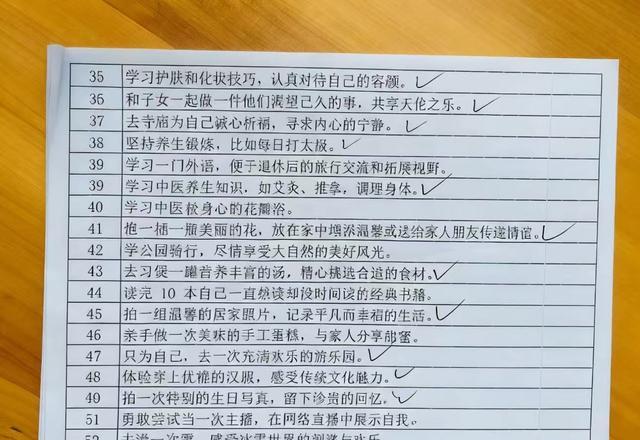 35 学习护肤和化妆技巧，认真对待自己的容颜。
36 和子女一起做一件他们渴望已久的事，共享天伦之乐。
37 去寺庙为自己诚心祈祷，寻求内心的宁静。
38 坚持养生锻炼，比如每日打太极。
39 学习一门外语，便于退休后的旅行交流和拓展视野。
39 学习中医养生知识，如艾灸、推拿，调理身体。
40 学习中医 身心的花 浴。
41 抱一 一 美丽的花，放在家中增添温馨或送给家人朋友传递情谊。
42 学公园骑行，尽情享受大自然的美好风光。
43 去习煲一罐营养丰富的汤，精心挑选合适的食材。
44 读完 10 本自己一直想读却没时间读的经典书籍。
45 拍一组温馨的居家照片，记录平凡而幸福的生活。
46 亲手做一次美味的手工蛋糕，与家人分享甜蜜。
47 只为自己，去一次充满欢乐的游乐园。
48 体验穿上优雅的汉服，感受传统文化魅力。
49 拍一次特别的生日写真，留下珍贵的回忆。
51 勇敢尝试当一次主播，在网络直播中展示自我。